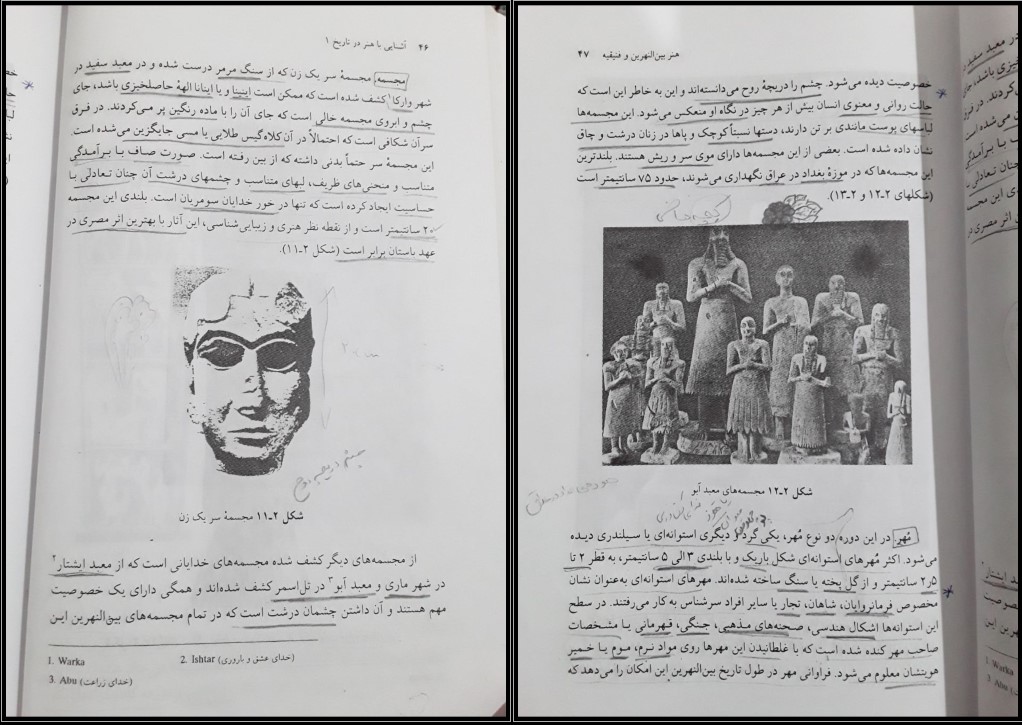 ۴۶ آشنایی با هنر در تاریخ ۱
مجسمه مجسمهٔ سر یک زن که از سنگ مرمر درست شده و در معبد سفید در
شهر وارکا۱ کشف شده است که ممکن است ایینا و یا اینانا الههٔ حاصلخیزی باشد، جای
چشم و ابروی مجسمه خالی است که جای آن را با ماده رنگین پر می‌کردند. در فرق
سر آن شکافی است که احتمالاً در آن کلاه‌گیس طلایی یا مسی جایگزین می‌شده است.
این مجسمهٔ سر حتماً بدنی داشته که از بین رفته است. صورت صاف با برآمدگی
متناسب و منحنی‌های ظریف، لبهای متناسب و چشمهای درشت آن چنان تعادلی با
حساسیت ایجاد کرده است که تنها در خور خدایان سومریان است. بلندی این مجسمه
۲۰ سانتیمتر است و از نقطه نظر هنری و زیبایی‌شناسی، این آثار با بهترین اثر مصری در
عهد باستان برابر است (شکل ۲ـ۱۱).
۲۰ cm
چشم دریچه روح
شکل ۲ـ۱۱ مجسمهٔ سر یک زن
از مجسمه‌های دیگر کشف شده مجسمه‌های خدایانی است که از معبد ایشتار۲
در شهر ماری و معبد آبو۳ در تل‌اسمر کشف شده‌اند و همگی دارای یک خصوصیت
مهم هستند و آن داشتن چشمان درشت است که در تمام مجسمه‌های بین‌النهرین این
1. Warka
2. Ishtar (خدای عشق و باروری)
3. Abu (خدای زراعت)
هنر بین‌النهرین و فنیقیه ۴۷
خصوصیت دیده می‌شود. چشم را دریچهٔ روح می‌دانسته‌اند و این به خاطر این است که
حالت روانی و معنوی انسان بیش از هر چیز در نگاه او منعکس می‌شود. این مجسمه‌ها
لباسهای پوست مانندی بر تن دارند، دستها نسبتاً کوچک و پاها در زنان درشت و چاق
نشان داده شده است. بعضی از این مجسمه‌ها دارای موی سر و ریش هستند. بلندترین
این مجسمه‌ها که در موزهٔ بغداد در عراق نگهداری می‌شوند، حدود ۷۵ سانتیمتر است
(شکلهای ۲ـ۱۲ و ۲ـ۱۳).
شکل ۲ـ۱۲ مجسمه‌های معبد آبو
مُهر در این دوره دو نوع مُهر، یکی گرد و دیگری استوانه‌ای یا سیلندری دیده
می‌شود. اکثر مُهرهای استوانه‌ای شکل باریک و با بلندی ۳ الی ۵ سانتیمتر، به قطر ۲ تا
۲٫۵ سانتیمتر و از گل پخته یا سنگ ساخته شده‌اند. مهرهای استوانه‌ای به‌عنوان نشان
مخصوص فرمانروایان، شاهان، تجار یا سایر افراد سرشناس به کار می‌رفتند. در سطح
این استوانه‌ها اشکال هندسی، صحنه‌های مذهبی، جنگی، قهرمانی یا مشخصات
صاحب مهر کنده شده است که با غلطانیدن این مهرها روی مواد نرم، موم یا خمیر
هویتشان معلوم می‌شود. فراوانی مهر در طول تاریخ بین‌النهرین این امکان را می‌دهد که